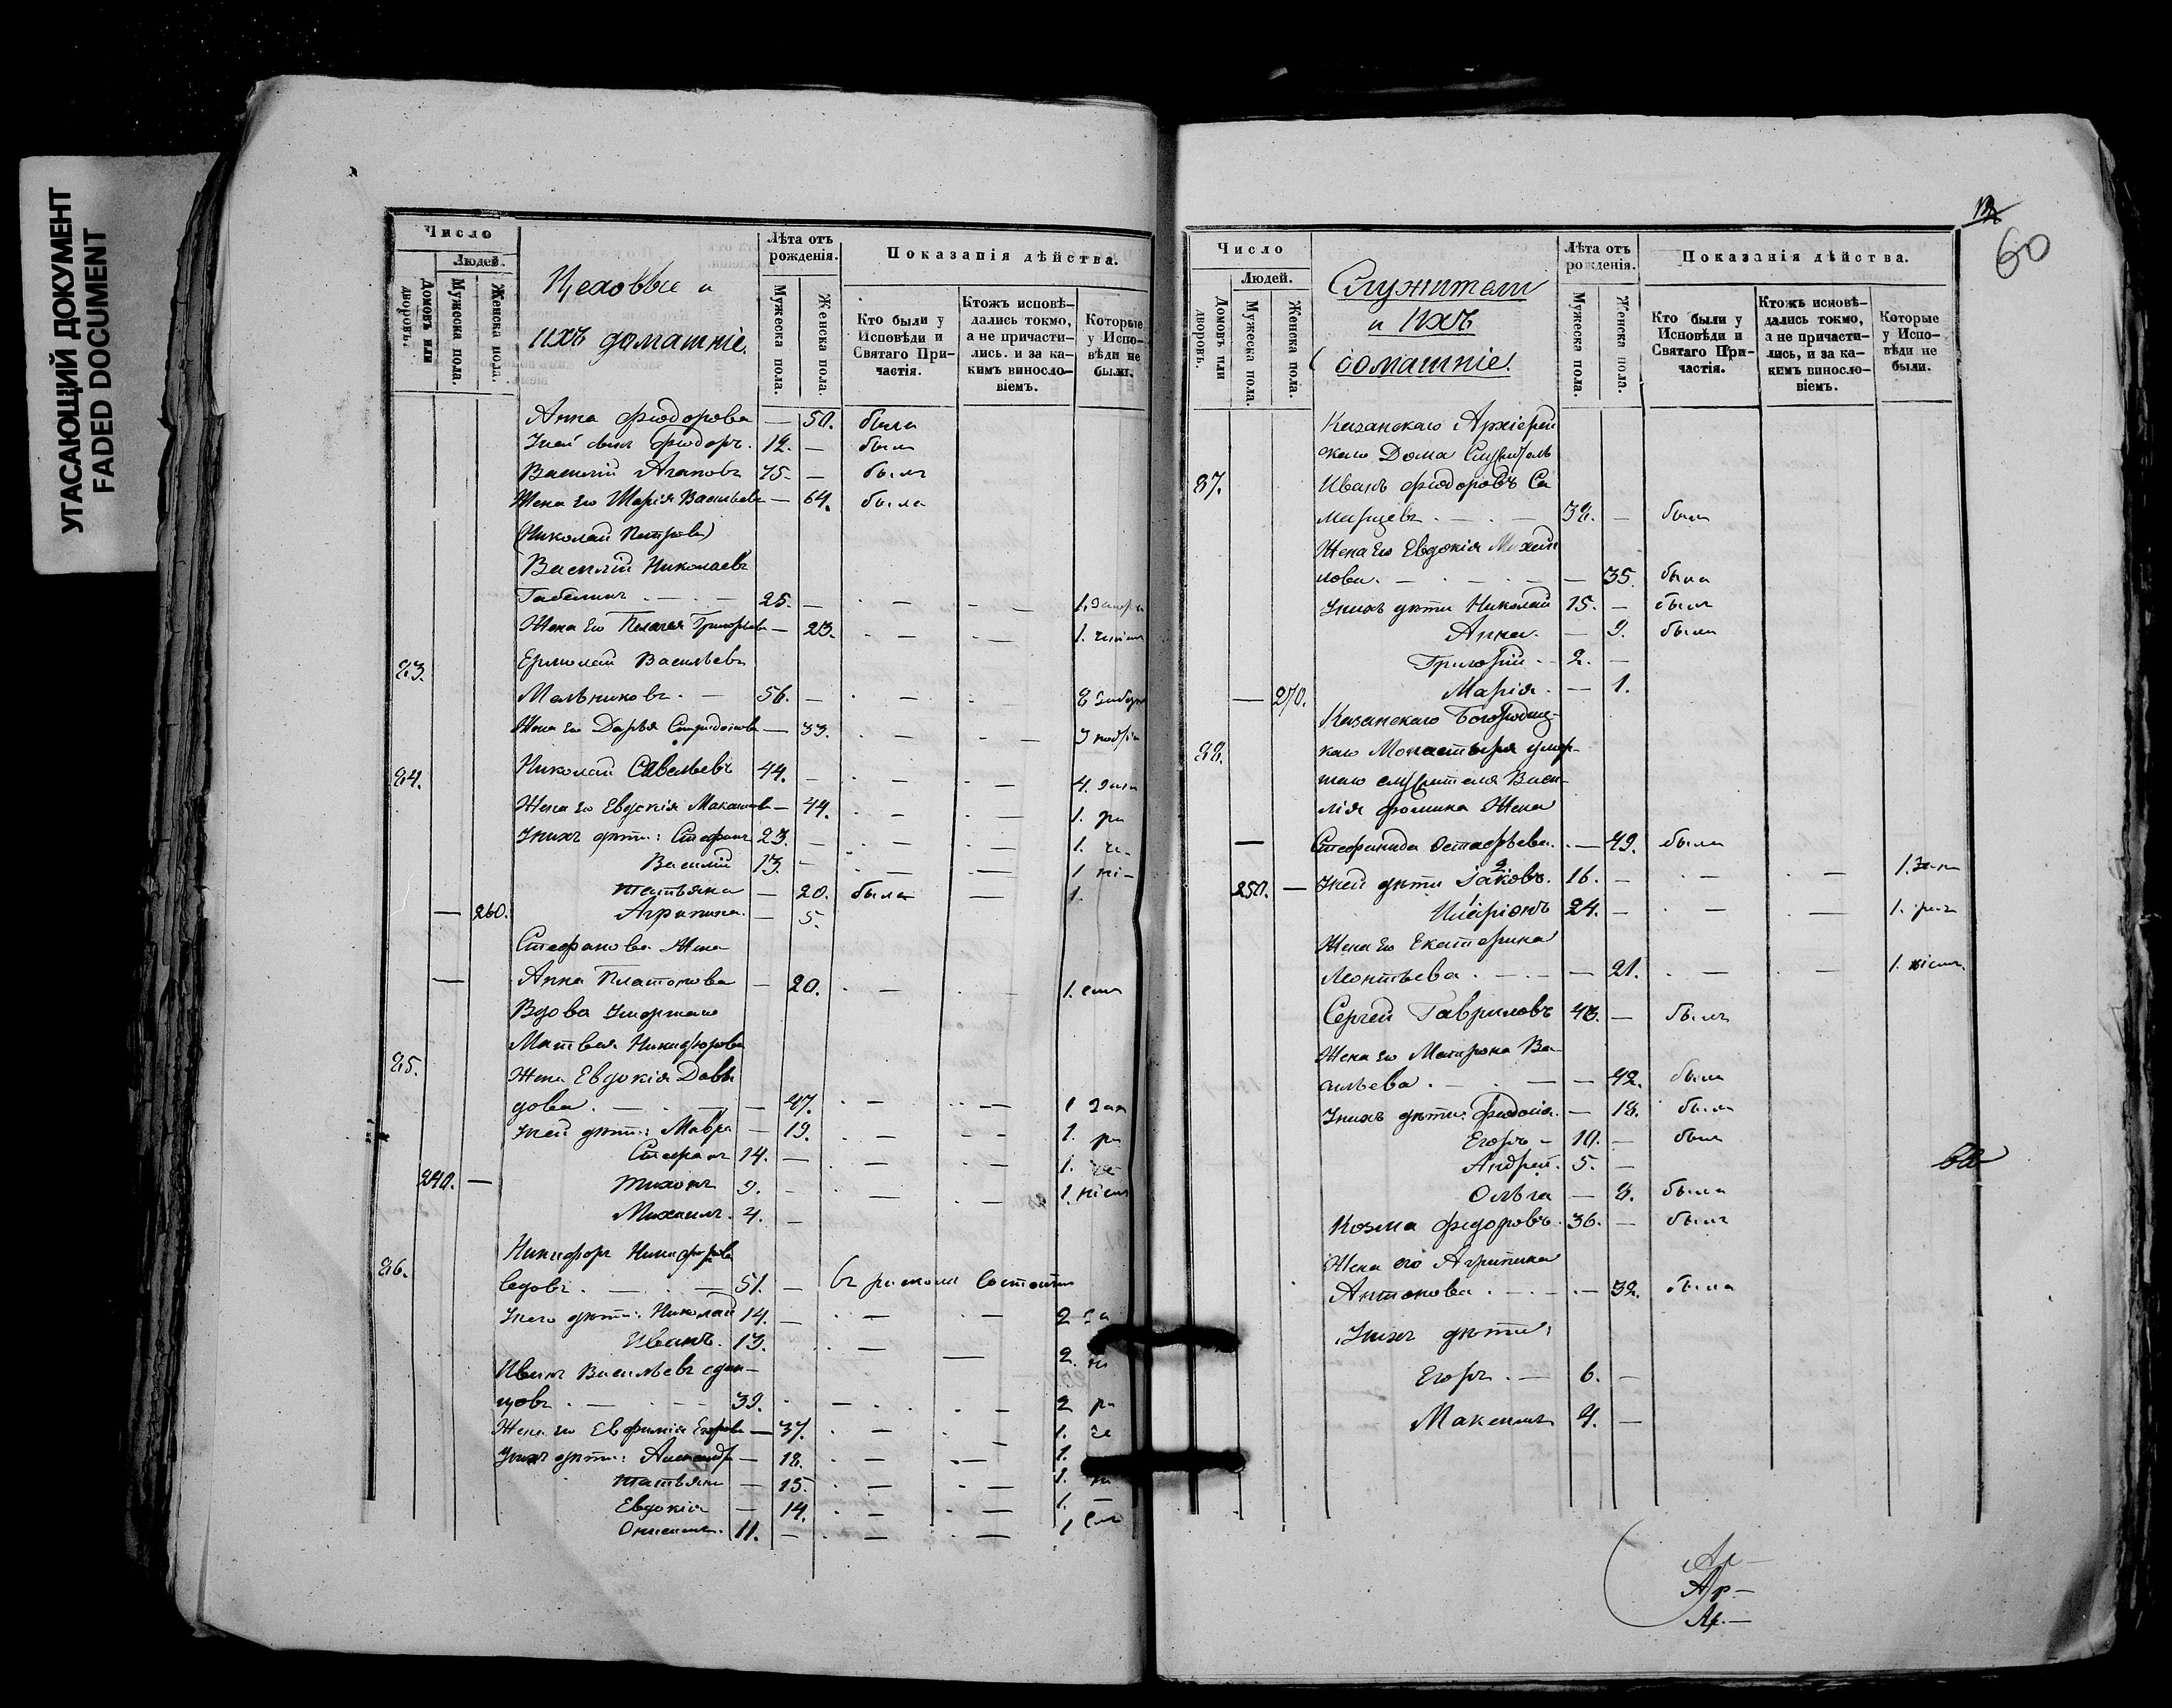 УГАСАЮЩИЙ ДОКУМЕНТ
FADED DOCUMENT
Число
Людей.
Домовъ или дворовъ.
Мужеска пола.
Женска пола.
Цеховые и
ихъ домашніе.
Лѣта отъ рожденія.
Мужеска пола.
Женска пола.
Показанія дѣйства.
Кто были у Исповѣди и Святаго Причастія.
Ктожъ исповѣдались токмо, а не причастились. и за какимъ винословіемъ.
Которые у Исповѣди не были.
Анна Фіодорова — 50. была
У ней сынъ Фіодоръ. 12. — былъ
Василій Агаповъ 75. — былъ
Жена его Марія Васильева — 64. была
(Николай Петровъ)
Василій Николаевъ
25. — — — 1.
Жена его Пелагея Григорьева — 23. — — 1.
83. Ермолай Васильевъ
Мельниковъ. — 56. — — — 8
Жена его Дарья Спиридонова — 33. — — 3
84. Николай Савельевъ 44. — — — 4.
Жена его Евдокія — 44. — — 1. ра
У нихъ дѣти: Стефанъ 23. — — — 1.
Василій 13. — — — 1
Татьяна — 20. была — 1.
— 260. Агрипина. — 5.
Стефанова Жена
— Анна Платонова — 20. — — 1.
Вдова Умершаго
Матвея Никифорова
85. Жена Евдокія Давы
дова. — — 47. — — 1
У ней дѣти: Мавра — 19. — — 1. ра
Стефанъ 14. — — — 1.
240. — Тихонъ 9. — — — 1.
Михаилъ. 4. —
86. Никифоръ Никифоровъ
51. — въ расколѣ состоитъ
У него дѣти: Николай 14. — — — 2
Иванъ. 13. — — 2.
Иванъ Васильевъ
цовъ. — 39. — — 2 ра
Жена его Евфимія Егорова — 37. — — 1.
У нихъ дѣти: Александра — 18. — — 1.
Татьяна — 15. — — 1.
Евдокія — 14. — — 1.
11. — — — 1
60
Число
Людей.
Домовъ или дворовъ.
Мужеска пола.
Женска пола.
Служители
и ихъ
домашніе.
Лѣта отъ рожденія.
Мужеска пола.
Женска пола.
Показанія дѣйства.
Кто были у Исповѣди и Святаго Причастія.
Ктожъ исповѣдались токмо, а не причастились, и за какимъ винословіемъ.
Которые у Исповѣди не были.
Казанскаго Архіерей
скаго Дома Служитель
87. Иванъ Фіодоровъ Са
марцевъ. — 38. — былъ
Жена его Евдокія Михай
лова. — — 35. была
У нихъ дѣти Николай 15. — былъ
Анна. — 9. была
Григорій — 2. —
— 270. Марія. — 1.
Казанскаго Богородиц-
88. каго Монастыря умер-
шаго служителя Васи-
лія Фомина Жена
— Стефанида Остафьева. — 49. была
250. — У ней дѣти Іаковъ. 2 16. — — — 1.
Иларіонъ 1 24. — — — 1.
Жена его Екатерина
Леонтьева. — — 21. — — 1.
Сергей Гавриловъ 43. — былъ
Жена его Матрона Ва-
сильева. — — 42. была
У нихъ дѣти: — 18. была
Егоръ — 10. — былъ
Андрей. 5. —
Ольга — 8. была
Козма Федоровъ. 36. — былъ
Жена его Агрипина
Антонова. — — 32. была
У нихъ дѣти:
Егоръ. — 6. —
Максимъ 4. —
Ар—